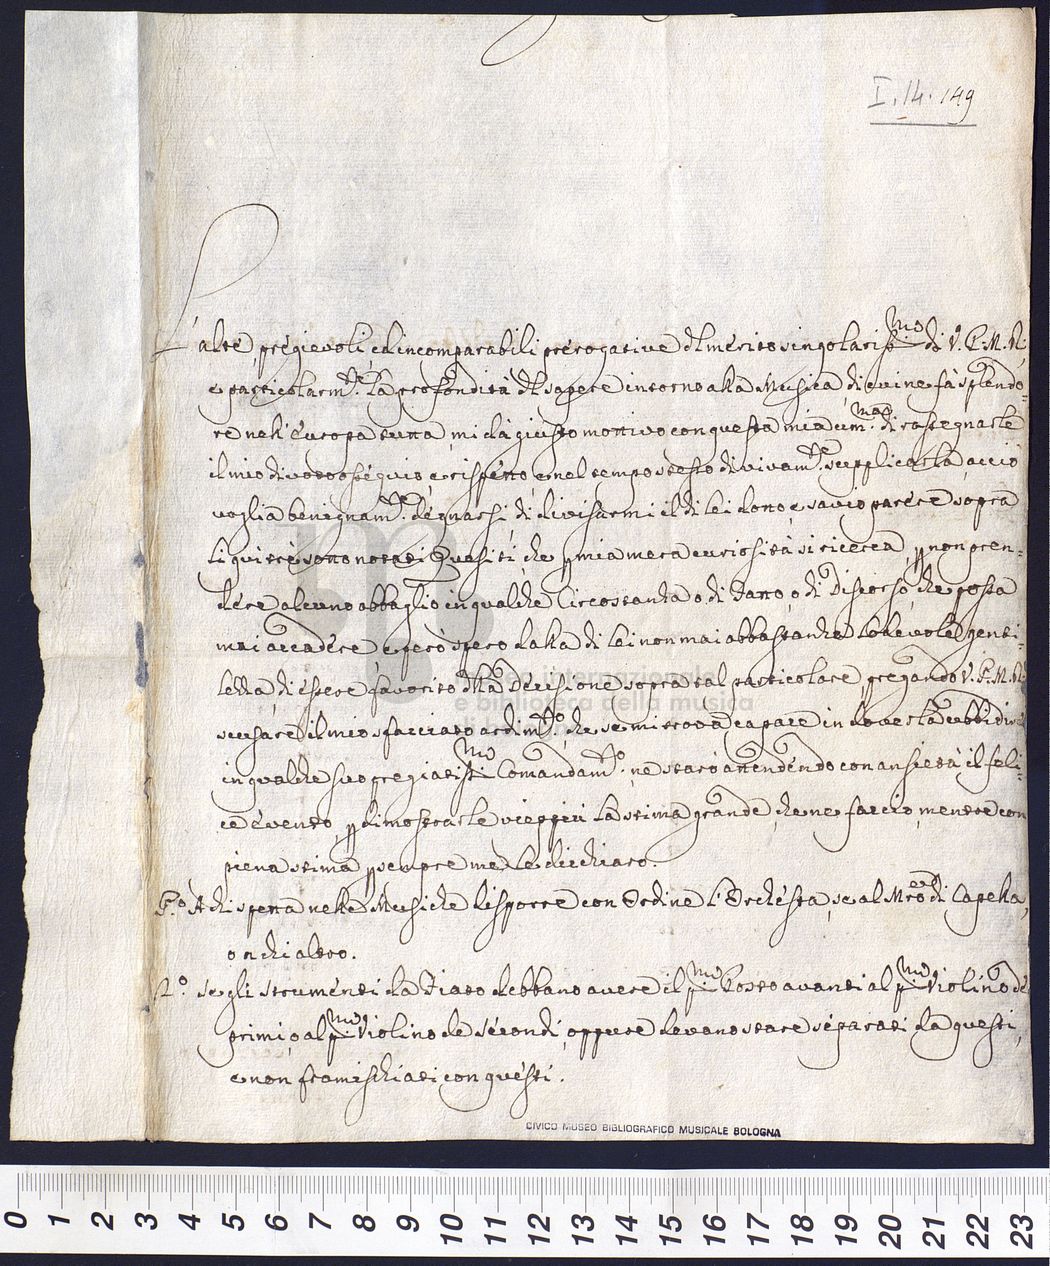 I. 14. 149
L'alte, pregievoli, ed incomparabili prerogative del merito singolariss.mo di V. P. M. R.
e particolarm.te la profondità del sapere intorno alla Musica, di cui ne fà splendo=
re nell'Europa tutta, mi dà giusto mottivo con questa mia um.ma di rassegnarle
il mio divoto ossequio e rispetto, e nel tempo stesso di vivam.te supplicarla, acciò
voglia benignam.te degnarsi di divisarmi il di lei dotto, e savio parere sopra
li qui trè sotto notati Quesiti, che p mia mera curiosità si ricerca, p non pren=
dere alcuno abbaglio in qualche Circostanza o di Fatto, o di Discorso, che possa
mai accadere, e però spero dalla di lei non mai abbastanza lodevole genti=
lezza, di essere favorito della Decisione sopra tal particolare, pregando V. P. M. R.
scusare il mio sfacciato ardim.to, che se mi trovarà capace in doverla ubbidire
in qualche suo pregiatiss.mo Comandam.to, ne starò attendendo con ansietà il feli=
ce Evento, p dimostrarle vieppiù la stima grande, che ne faccio, mentre con
piena stima p sempre me le dichiaro.
P.o A chi spetta nelle Musiche disporre con Ordine l'Orchesta, se al Mro di Capella,
o a chi altro.
2.o se gli strumenti da Fiato debbano avere il p.mo Posto avanti al p.mo Violino de
primi, o al p.mo Violino de Secondi, oppure devano stare separati da questi,
e non framischiati con questi.
museo internazionale
e biblioteca della musica
di bologna
CIVICO MUSEO BIBLIOGRAFICO MUSICALE BOLOGNA
0 1 2 3 4 5 6 7 8 9 10 11 12 13 14 15 16 17 18 19 20 21 22 23